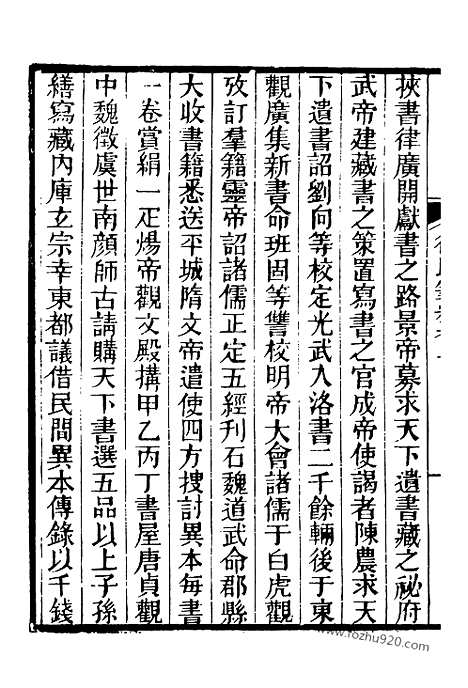 挾書律廣開獻書之路景帝募求天下遺書藏之祕府
武帝建藏書之策置寫書之官成帝使謁者陳農求天
下遺書詔劉向等校定光武入洛書二千餘輛後于東
觀廣集新書命班固等讐校明帝大會諸儒于白虎觀
攷訂羣籍靈帝詔諸儒正定五經刊石魏道武命郡縣
大收書籍悉送平城隋文帝遣使四方搜討異本每書
一卷賞絹一疋煬帝觀文殿搆甲乙丙丁書屋唐貞觀
中魏徵虞世南顏師古請購天下書選五品以上子孫
繕寫藏內庫玄宗幸東都議借民間異本傳錄以千錢
www.fozhu920.com